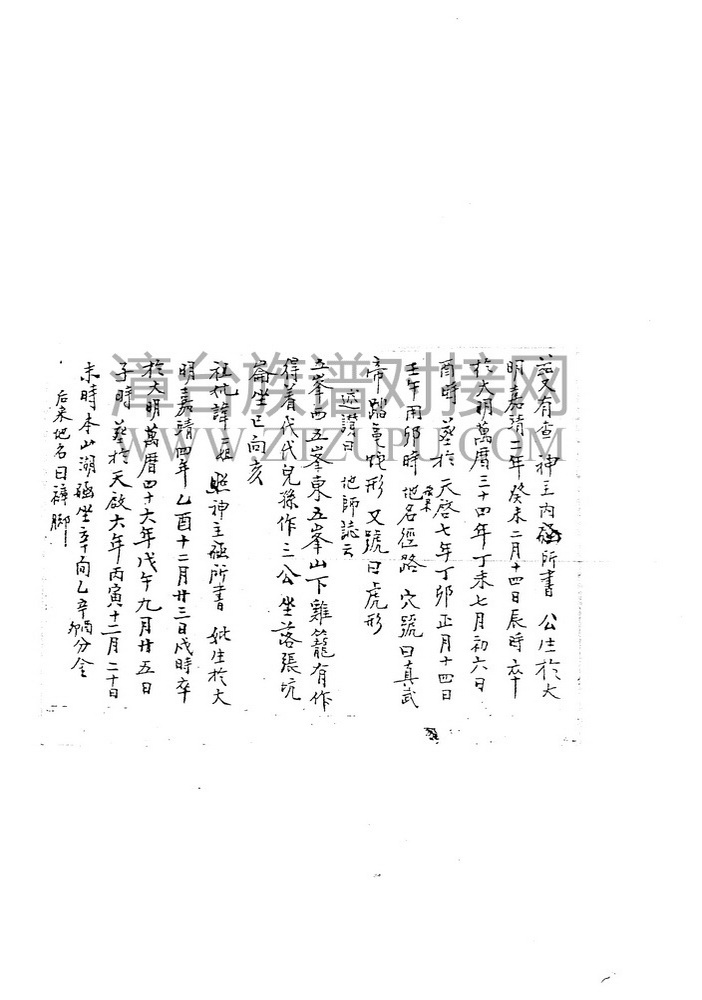 茲又有查 神主內所書 公生於大
明嘉靖二年癸未二月十四日辰時卒
於大明萬曆三十四年丁未七月初六日
酉時 葬於天啓七年丁卯正月十四日
壬午用卯時 地名徑路 穴號曰真武
帝踏龜蛇形 又號曰虎形
述讚曰 地師誌云
五峯西五峯東五峯山下雞籠有作
得着代代兒孫作三公 坐落張坑
崙坐巳向亥
祖妣諱一娘 照神主所書 妣生於大
明嘉靖四年乙酉十二月廿三日戌時卒
於大明萬曆四十六年戊午九月廿五日
子時 葬於天啟六年丙寅十二月二十日
未時本山湖坐辛向乙辛分金
后来地名曰褲脚
漳台族谱对接网
WWW.ZTZUPU.COM